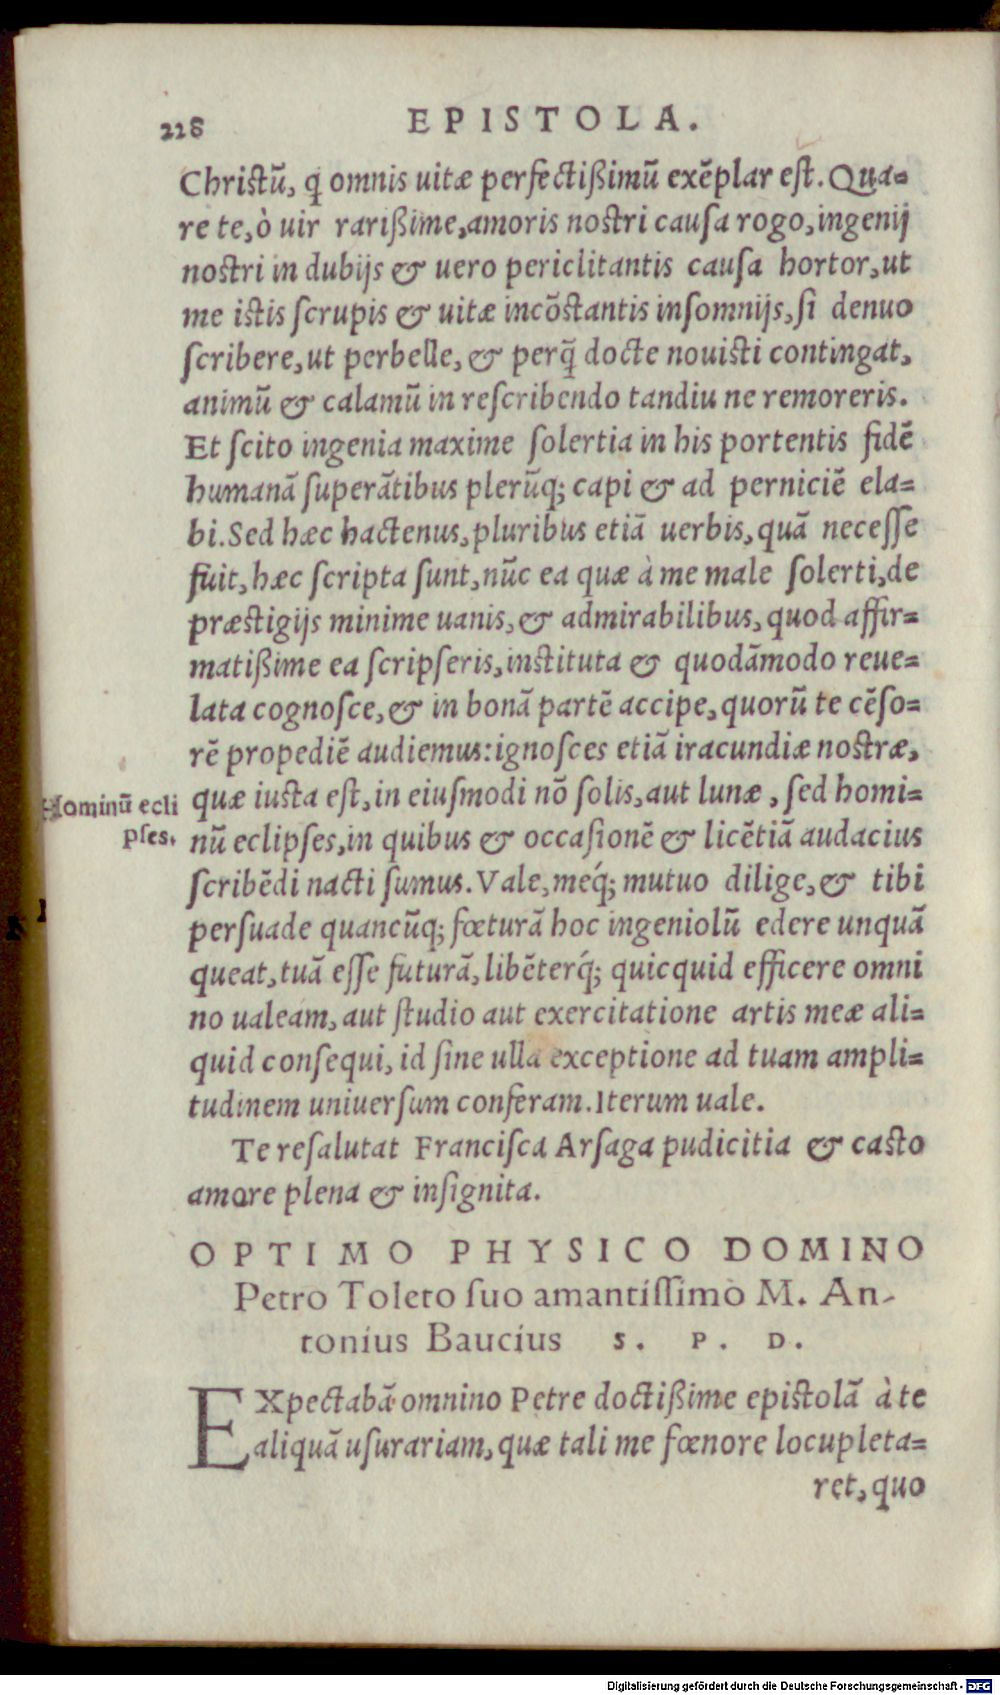 228 EPISTOLA.
Christũ, q̃ omnis uitæ perfectißimũ exẽplar eſt. Qua=
re te, ò uir rarißime, amoris nostri cauſa rogo, ingenij
nostri in dubijs & uero periclitantis cauſa hortor, ut
me istis ſcrupis & uitæ incõstantis inſomnijs, ſi denuo
ſcribere, ut perbelle, & perq̃ docte nouisti contingat,
animũ & calamũ in reſcribendo tandiu ne remoreris.
Et ſcito ingenia maxime ſolertia in his portentis fidẽ
humanã ſuperãtibus plerũq; capi & ad perniciẽ ela=
bi. Sed hæc hactenus, pluribus etiã uerbis, quã neceſſe
fuit, hæc ſcripta ſunt, nũc ea quæ à me male ſolerti, de
præstigijs minime uanis, & admirabilibus, quod affir=
matißime ea ſcripſeris, instituta & quodãmodo reue=
lata cognoſce, & in bonã partẽ accipe, quorũ te cẽſo=
rẽ propediẽ audiemus: ignoſces etiã iracundiæ nostræ,
quæ iusta est, in eiuſmodi nõ ſolis, aut lunæ, ſed homi=
Hominũ ecli
pſes.
nũ eclipſes, in quibus & occaſionẽ & licẽtiã audacius
ſcribẽdi nacti ſumus. Vale, meq́; mutuo dilige, & tibi
perſuade quancũq; fœturã hoc ingeniolũ edere unquã
queat, tuã eſſe futurã, libẽterq́; quicquid efficere omni
no ualeam, aut ſtudio aut exercitatione artis meæ ali=
quid conſequi, id ſine ulla exceptione ad tuam ampli=
tudinem uniuerſum conferam. Iterum uale.
Te reſalutat Franciſca Arſaga pudicitia & casto
amore plena & inſignita.
OPTIMO PHYSICO DOMINO
Petro Toleto ſuo amantiſſimo M. An-
tonius Baucius S. P. D.
EXpectabã omnino Petre doctißime epistolã à te
aliquã uſurariam, quæ tali me fœnore locupleta=
ret, quo
Digitalisierung gefördert durch die Deutsche Forschungsgemeinschaft - DFG